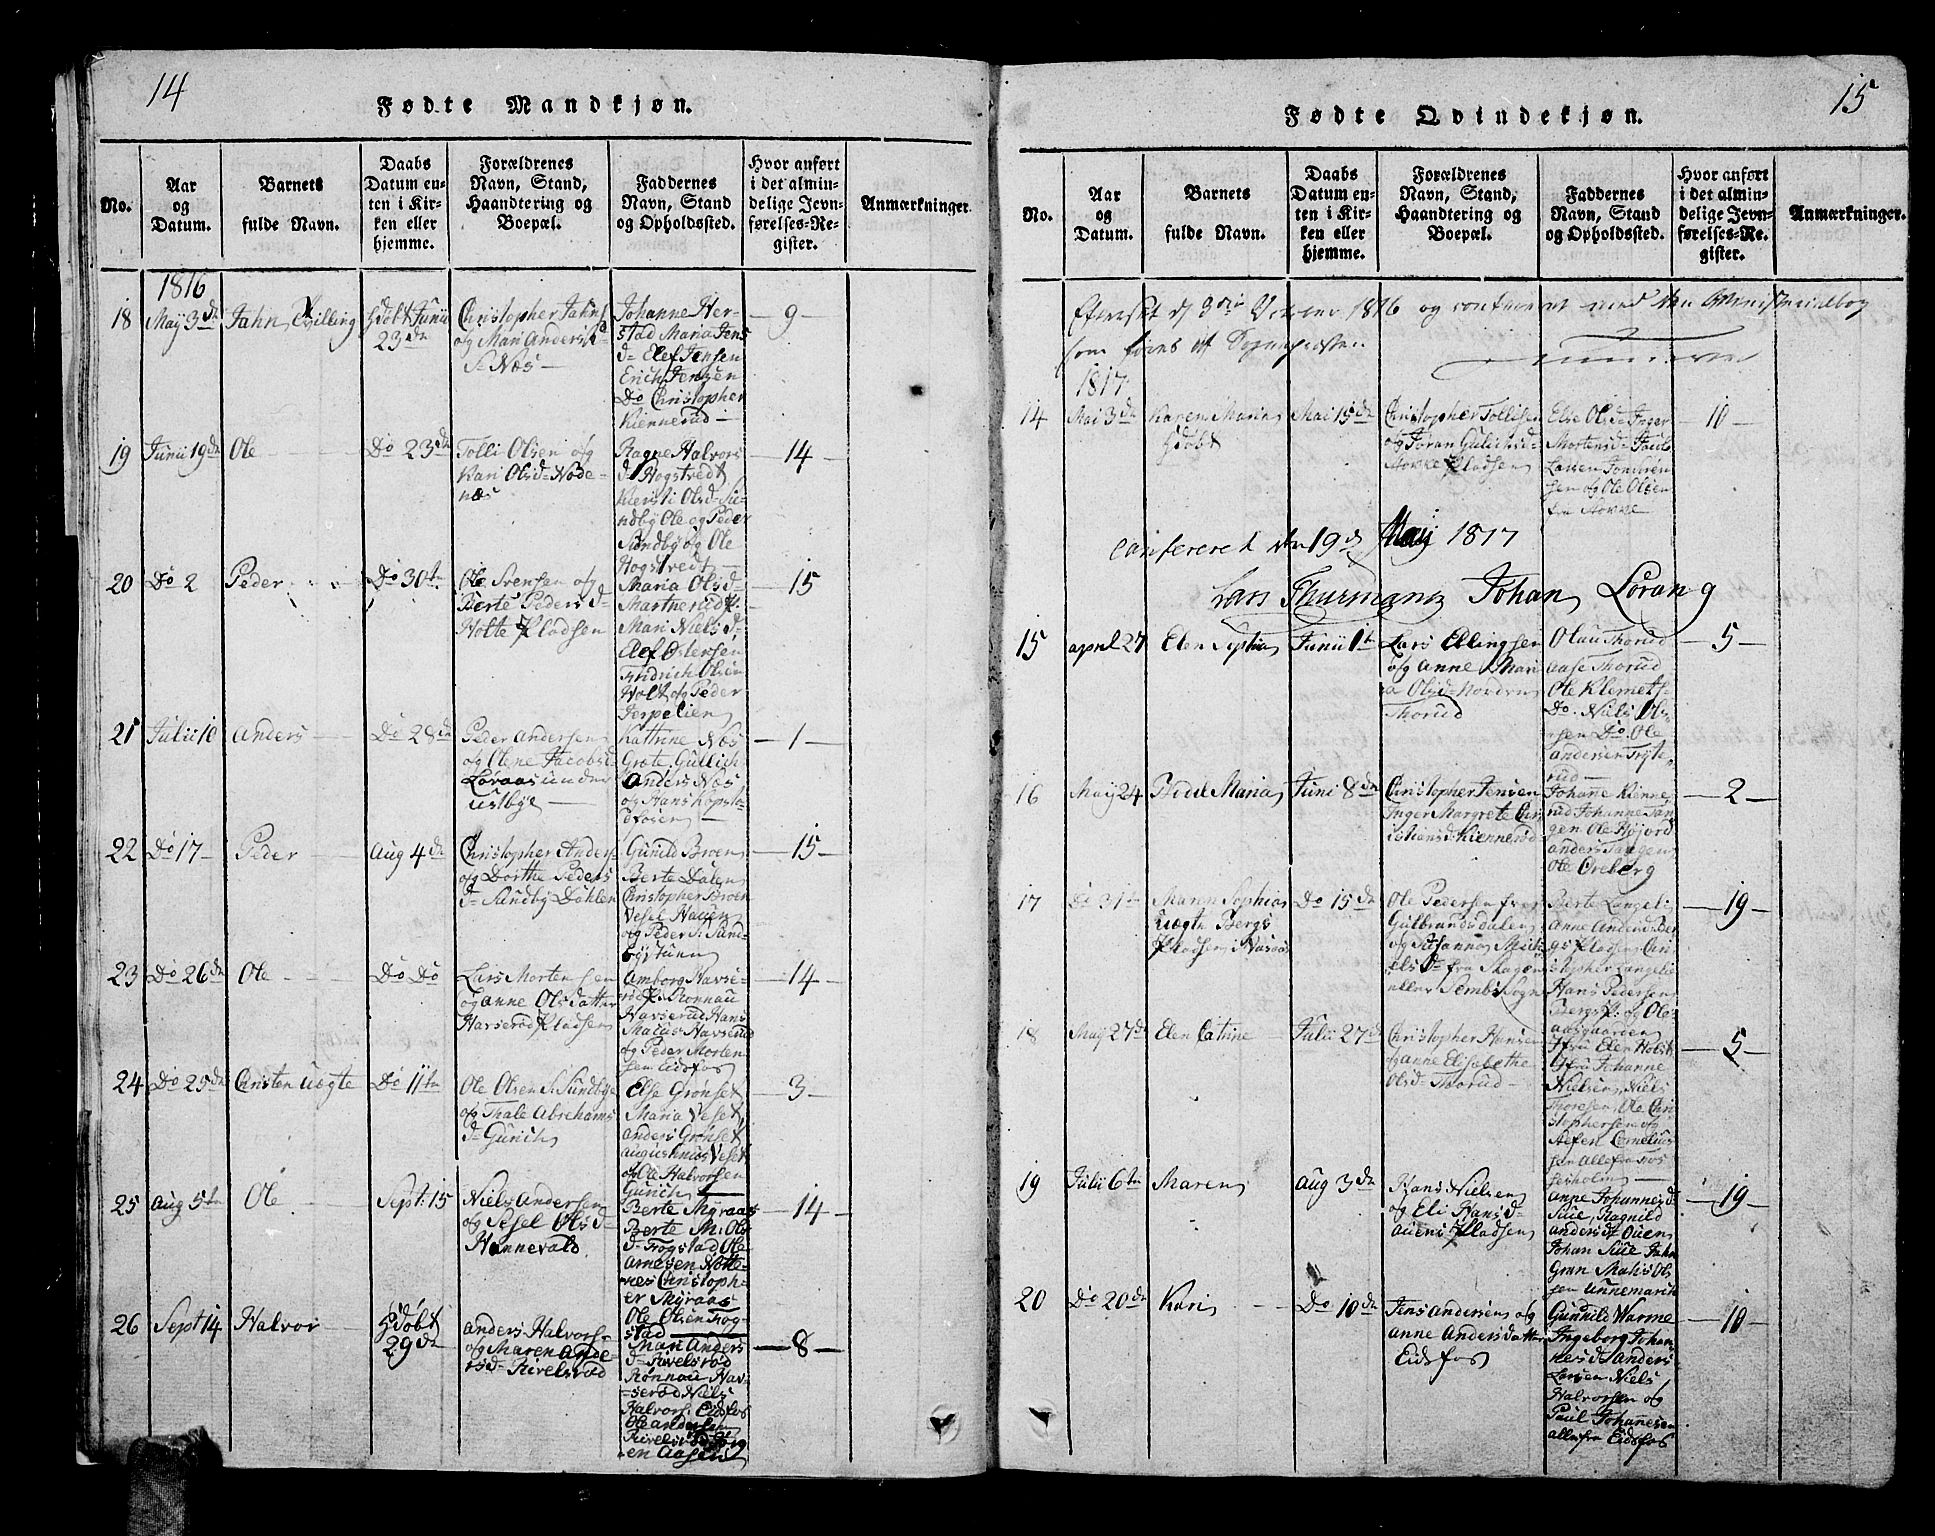 14
Fødte Mandkjøn.
No.
Aar
og
Datum.
Barnets
fulde Navn.
Daabs
Datum en-
ten i Kir-
ken eller
hjemme.
Forældrenes
Navn, Stand,
Haandtering og
Boepæl.
Faddernes
Navn, Stand
og Opholdssted.
Hvor anført
i det almin-
delige Jevn-
førelses-Re-
gister.
Anmærkninger
1816
18
May 3de
Jahn Tvilling
hdøbt Junii
23de
Christopher Jahns
og Mari Anders
d. Næs
Johanne Her-
stad Maria Jens
d. Elef Jensen
Erich Jensen
Do Christopher
Kiennerud
9
19
Junii 19de
Ole
Do 23de
Tolli Olsen og
Kari Olsd. Node-
næs
Ragne Halvors
d. Hogstvedt
Kiersti Olsd. Su-
ndby Ole og Peder
Sundby og Ole
Hogstvedt
14
20
Do 2
Peder
Do 30te
Ole Svensen og
Berte Peders d.
Holte Pladsen
Maria Olsd.
Martnerud P.
Mari Niels d.
Elef Ostersen
Fridrich Olsen
Holt og Peder
Jerpelien
15
21
Julii 10
Anders
Do 28de
Peder Andersen
og Olene Jacobsd
Løvaas under
ustbye
Kattrine Næs
Grete Gullich
Anders Næs
og Hans Kopsto
dtosen
1
22
Do 17
Peder
Aug 4de
Christopher Anders
og Dorthe Peders
d. Sundby Dahlen
Gunild Broen
Berte Dalen
Christopher Broen
Vesel Hauen
og Peder S. Sund-
byetunn
15
23
Do 26de
Ole
Do Do
Lars Mortensen
og Anne Olsdatter
Havserød Pladsen
Amborg Havse-
rød P. Ronnau
Havserud Hans
Matias Havserud
og Peder Morten
sen Eidsfos
14
24
Do 25de
Christen uægte
Do 11te
Ole Olsen S. Sundbye
og Thale Abrehams
d. Gurich
Else Grønset
Maria Veset
Anders Grønset
Augustinios Veset
og Ole Halvorsen
Gurich
3
25
Aug 5te
Ole
Sept: 15
Niels Andersen
og Sesel Olsd.
Hannevald
Berte Myraas
Berte M: Ols
d. Frogstad Ole
Arnesen Notte-
næs Christoph-
er Myraas
Ole Olsen Frog-
stad
14
26
Sept 14
Halvor
hdøbt
29de
Anders Halvors-
og Maren Ande-
rsd. Rivelsrød
Mari Anders
d. Rivelsrød
Rønnau Hav-
serød Niels
Halvors: Eidsfos
Ole Andersen
Rivelsrød og
en Aasen
8
15
Fødte Qvindekjøn.
No.
Aar
og
Datum.
Barnets
fulde Navn.
Daabs
Datum en-
ten i Kir-
ken eller
hjemme.
Forældrenes
Navn, Stand,
Haandtering og
Boepæl.
Faddernes
Navn, Stand
og Opholdssted.
Hvor anført
i det almin-
delige Jevn-
førelses-Re-
gister.
Anmærkninger.
Efterset d 1816 og confereret med den Ministerialbog
som føres af Sognepræsten
1817
14
Mai 3de
Karen Maria
hdøbt
Mai 15de
Christopher Tollesen
og Joran Gulichsd.
Hovve Pladsen
Else Olsd. Inger
Mortensd.
Larsen
sen og Ole Olsen
fra Hovve
10
Confereret den 19de May 1817
Lars Thurmann Johan Lorang
15
april 27
Elen Sophia
Junii 1te
Lars Ellingsen
og Anne Mari
a Olsd. Nordre
Thorud
Olau Thorud
Aase Thorud
Ole Klemets-
Do. Niels Ols-
sen Do. Ole
Andersen Tryte-
rud
5
16
May 24
Bodel Maria
Juni 8de
Christopher Jensen
Inger Margrete Chr
istiansd. Kiennerød
Johane Kienne
rud Johanne Tan
gen Ole Hojord
Anders Tangen
Ole Oreberg
2
17
Do 31te
Marin Sophia
uægte Bergs
Pladsen i Vasaas
Do 15de
Ole Pedersen fra
Gulbrandsdalen
og Susanna Mich-
els d. fra Skagen
eller Sembs Sogn
Berte Langeli
Anne Andersd. Ber
gs Pladsen Chri
stopher Langelie
Hans Pedersen
Bergs P. og Ole
Aasgaarden
19
18
May 27de
Elen Catrine
Julii 27de
Christopher Hansen
og Anne Elisabethe
Olsd. Thorud
Jfru Elen Holst
Jfru Johanne
Nielsen, Niels
Thoresen, Ole Chri
stophersen og
Stefen Cornelius
sen Alle fra Fos
sesholm
5
19
Julii 6te
Maren
Aug 3de
Hans Nielsen
og Eli Hans d.
Auens Pladsen
Anne Johannesd
Sue, Ragnild
Andersdt Ouen
Johan Sue Jahn
Gran Matis Ol
sen unnemarch
19
20
Do 20de
Kari
Do 10de
Jens Andersen og
Anne Andersdatter
Eidsfos
Gunnild Warme
Ingeborg Johan
nesd. Anders
Larsen Niels
Halvorsen og
Paul Johanesen
alle fra Eidsfos
10